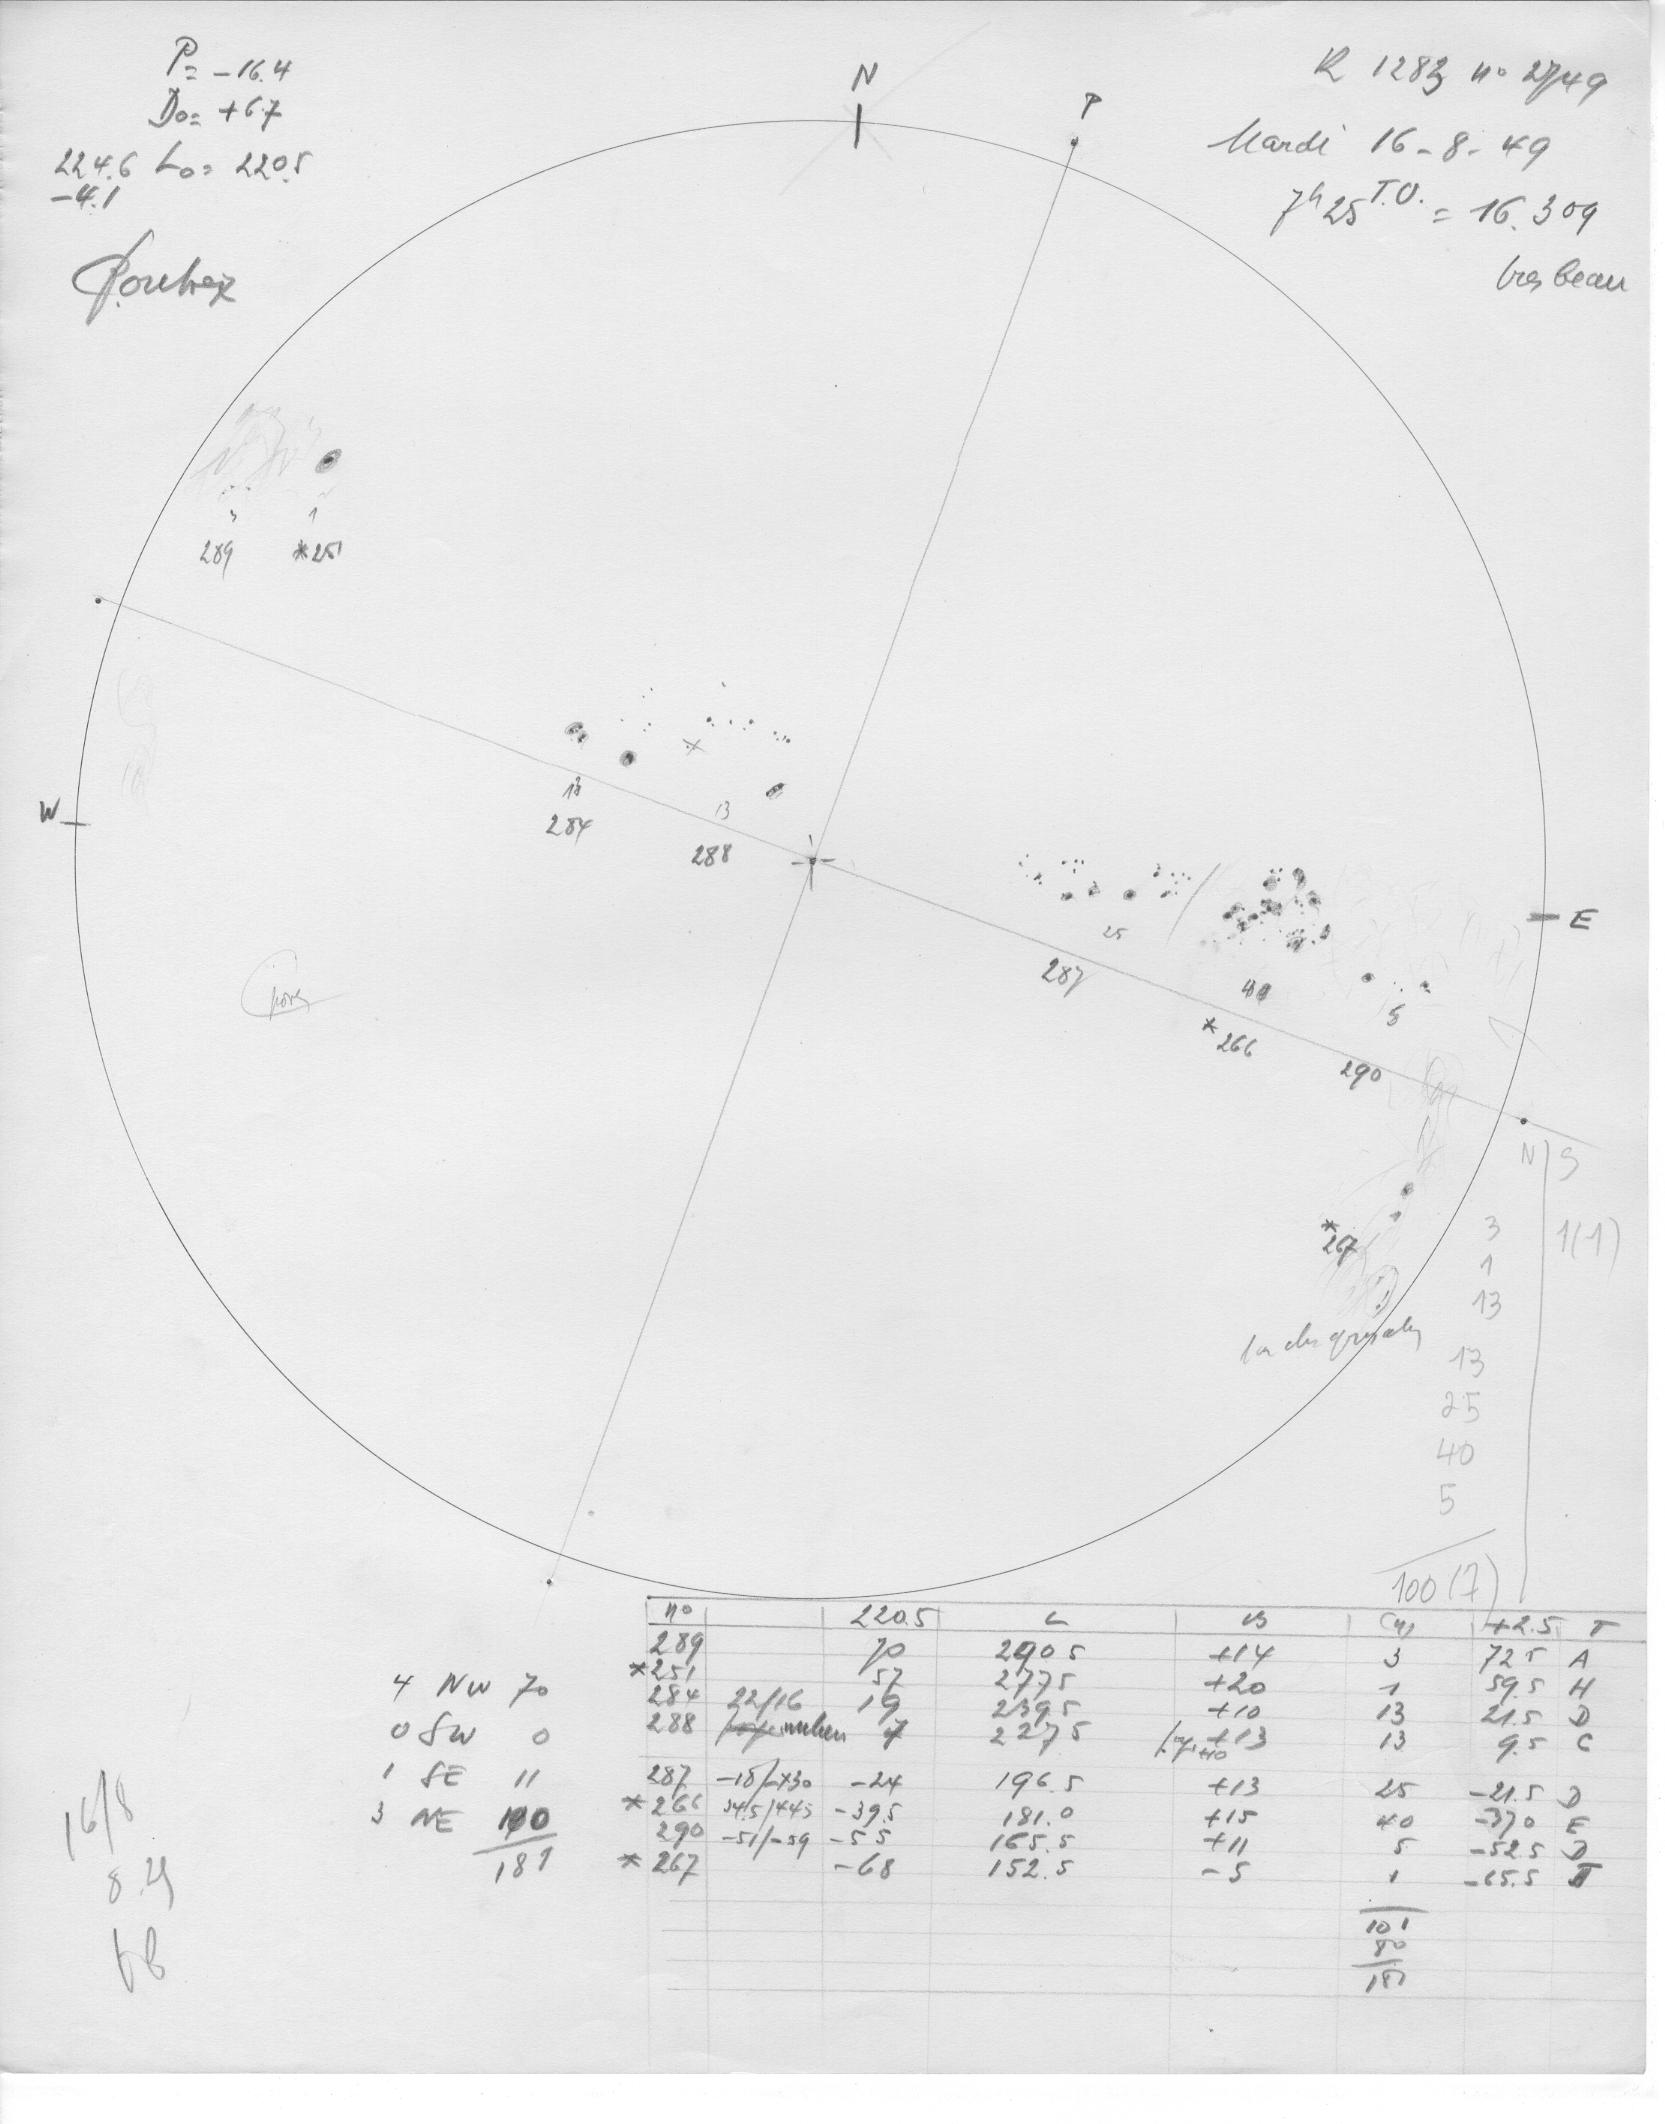 P = -16.4
Do = +6.7
224.6 Lo = 220.5
-4.1
N
P
R 1283 no 2749
Mardi 16-8-49
7h25 T.U. = 16.309
très beau
3 1
289 *251
W
13 13
284 288
E
25
287
40
*266
5
290
N S
*267
3 1(1)
1
13
13
25
40
5
100(7)
no 220.5 L B (n) +2.5 T
289 70 290.5 +14 3 72.5 A
*251 57 277.5 +20 1 59.5 H
284 22/16 19 239.5 +10 13 21.5 D
288 7 227.5 +13 13 9.5 C
287 -18/-30 -24 196.5 +13 25 -21.5 D
*266 34.5/44.5 -39.5 181.0 +15 40 -37.0 E
290 -51/-59 -55 165.5 +11 5 -52.5 D
*267 -68 152.5 -5 1 -65.5
101
80
181
4 NW 70
0 SW 0
1 SE 11
3 NE 100
181
16/8